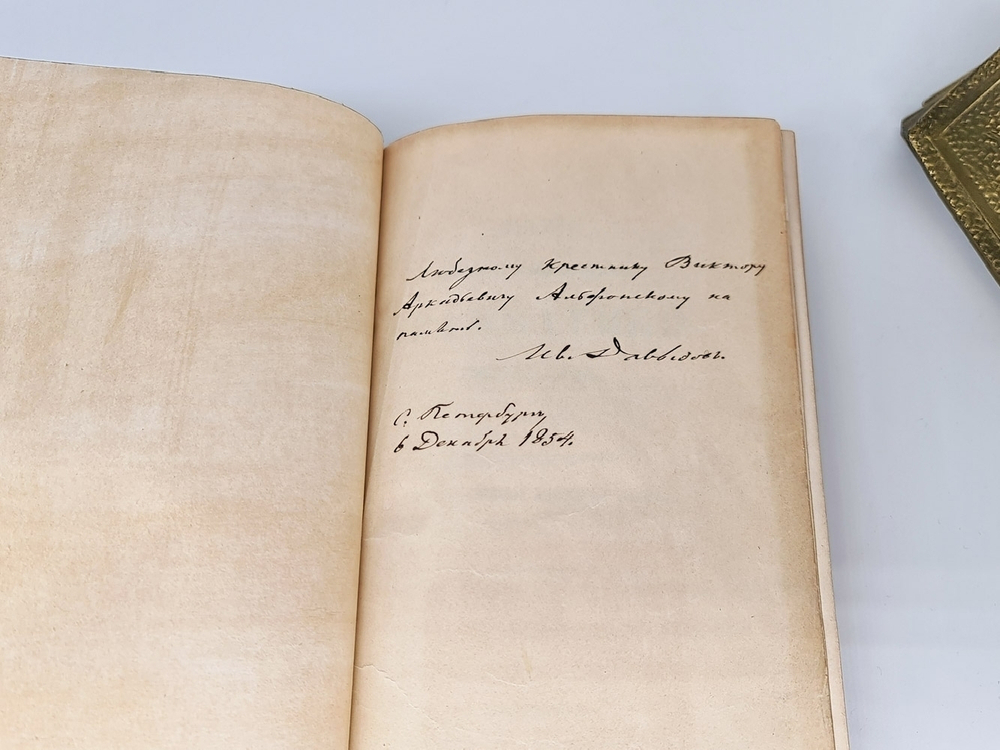 Любезному крестнику Виктору
Аркадьевичу Альфонскому на
память.
Ив. Давыдовъ.
С. Петербургъ
6 Декабря 1854.